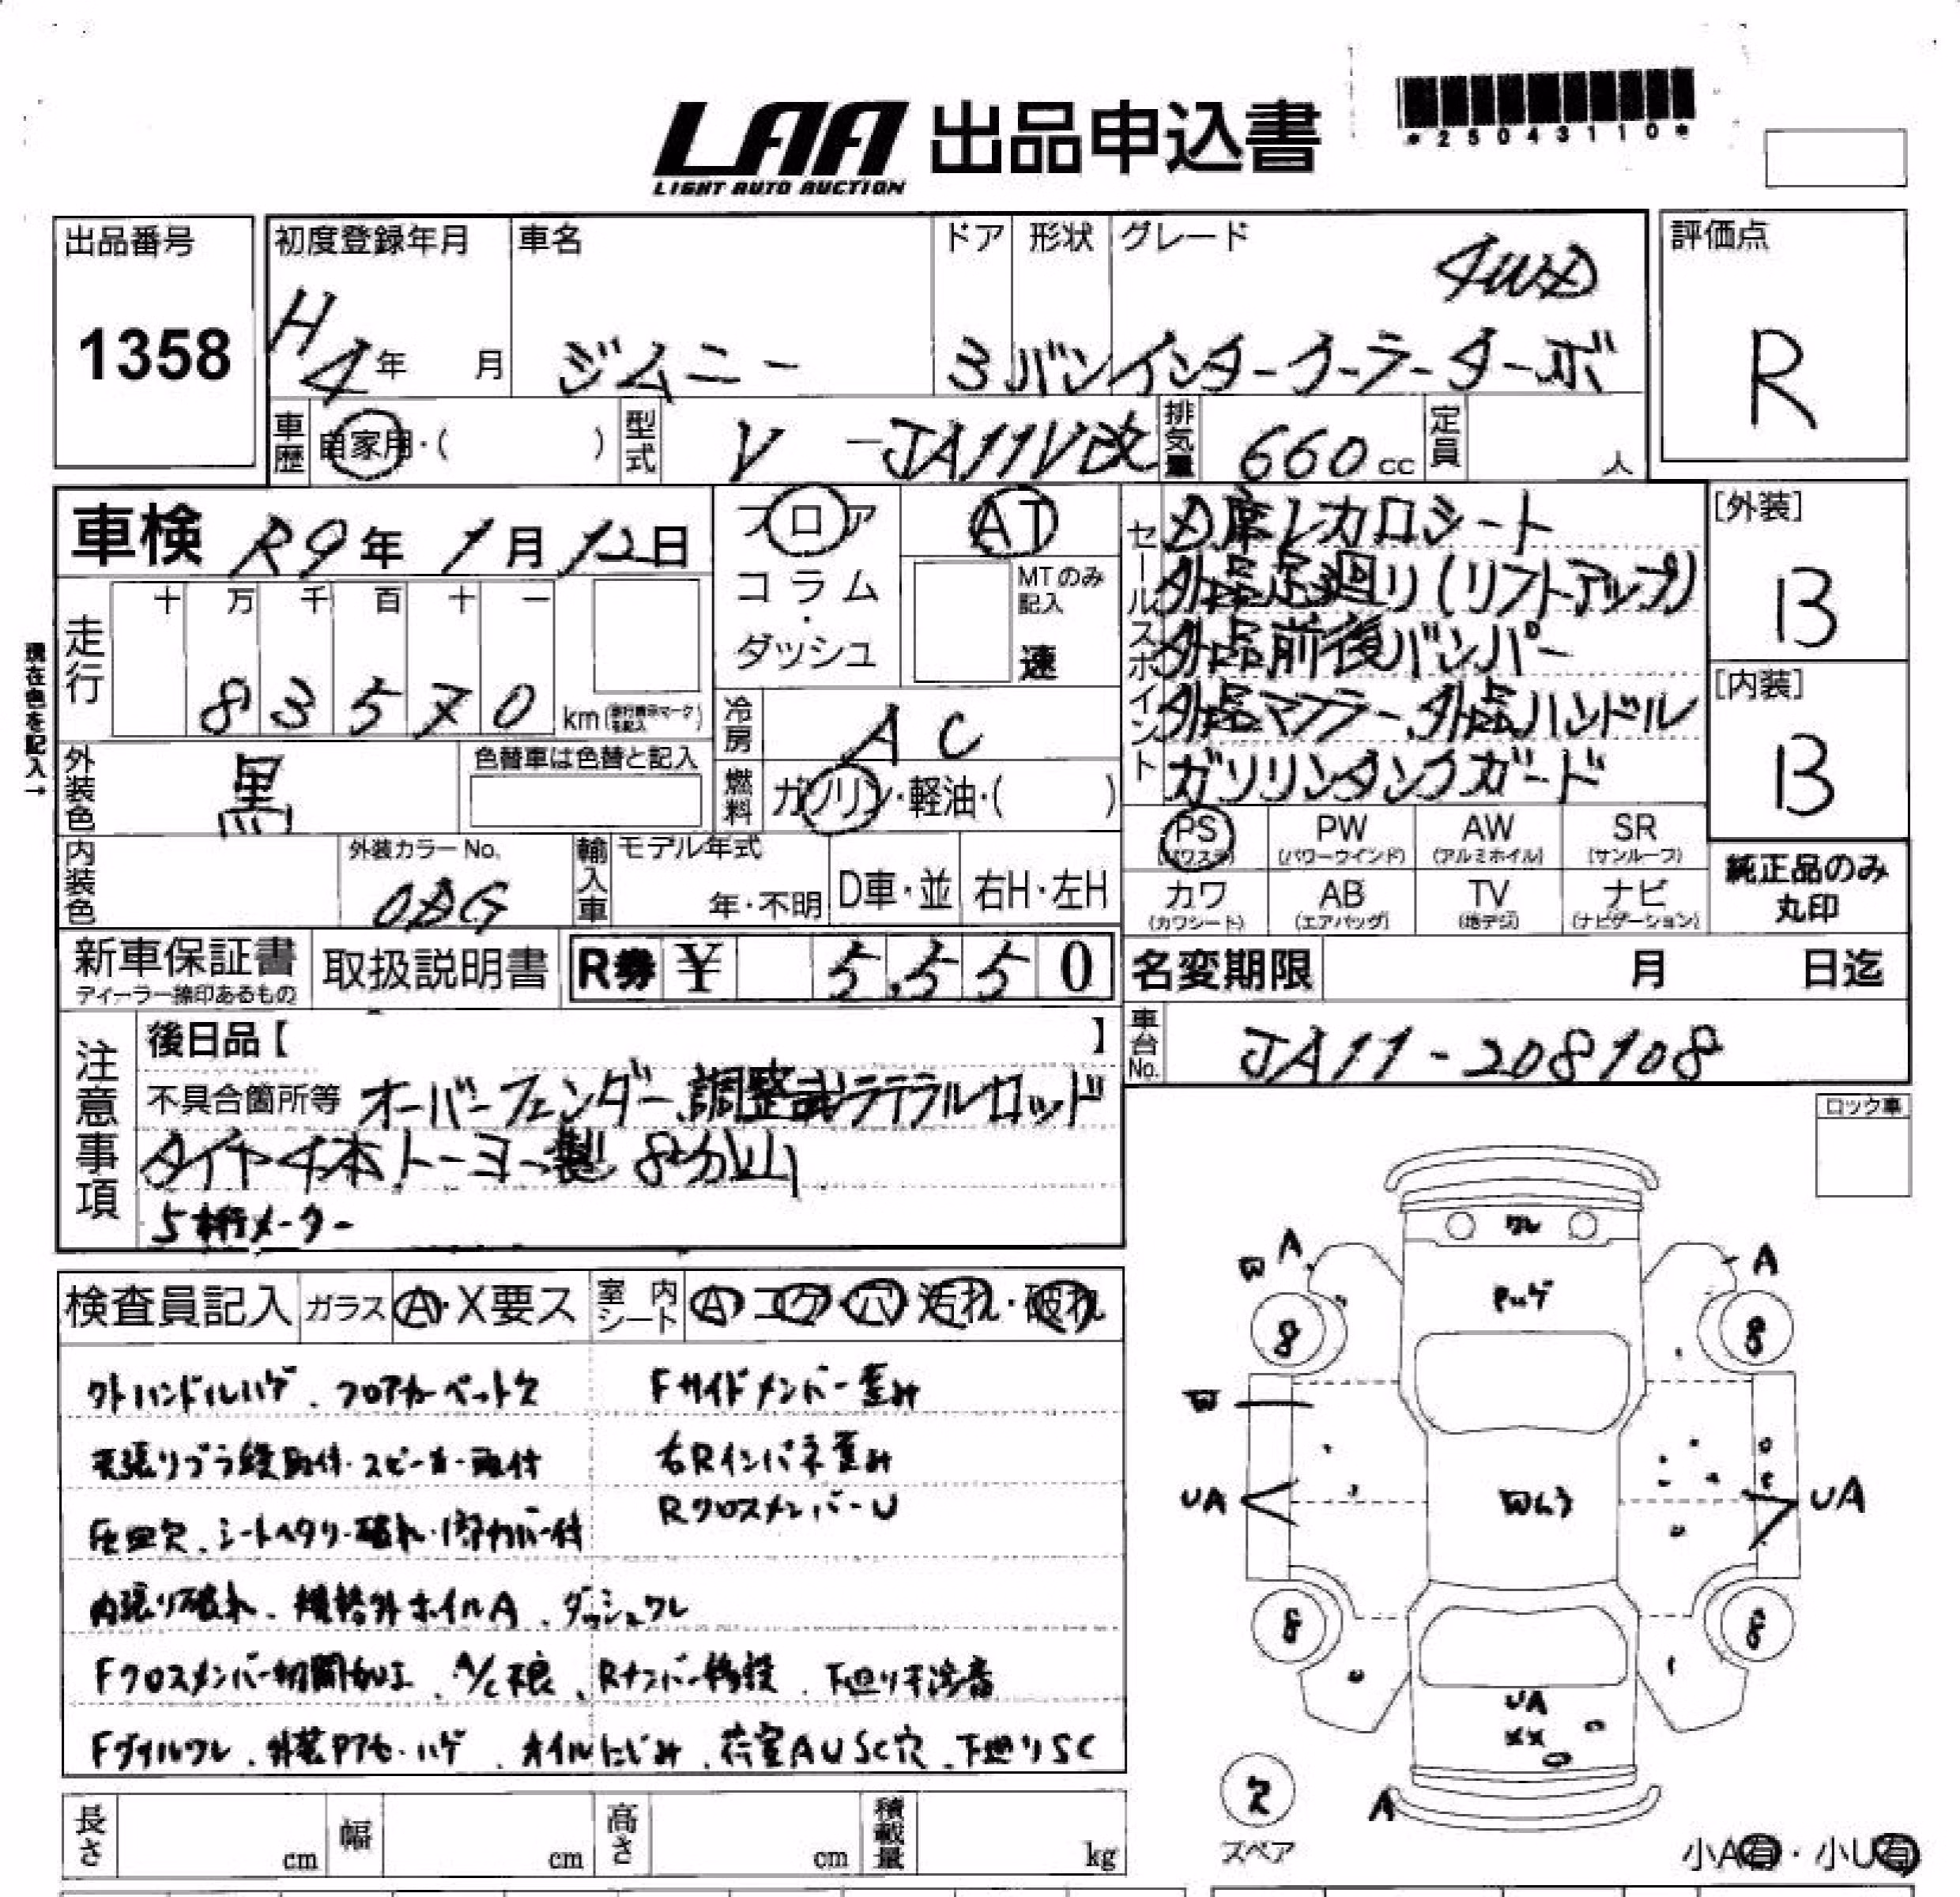 LAA 出品申込書
LIGHT AUTO AUCTION
*25043110*
出品番号
1358
初度登録年月
H4年 月
車名
ジムニー
ドア
3
形状
バン
グレード
4WD
インタークーラーターボ
評価点
R
車歴 自家用・( )
型式 V-JA11V改
排気量 660cc
定員 人
車検 R9年1月12日
フロア
コラム
・
ダッシュ
AT
MTのみ記入
速
セールスポイント
D席レカロシート
外品足廻り(リフトアップ)
外品前後バンパー
外品マフラー、外品ハンドル
ガソリンタンクガード
[外装]
B
[内装]
B
現在色を記入→
走行
十 万 千 百 十 一
8 3 5 7 0 km
冷房 AC
外装色 黒
色替車は色替と記入
燃料 ガソリン・軽油・( )
PS (パワステ)
PW (パワーウインド)
AW (アルミホイル)
SR (サンルーフ)
カワ (カワシート)
AB (エアバッグ)
TV (地デジ)
ナビ (ナビゲーション)
純正品のみ
丸印
内装色
外装カラーNo.
輸入車
モデル年式
年・不明
D車・並
右H・左H
新車保証書
ディーラー捺印あるもの
取扱説明書
R券 ¥ 5,550
名変期限 月 日迄
車台No. JA11-208108
注意事項
後日品【 】
不具合箇所等 オーバーフェンダー、調整式ラテラルロッド
タイヤ4本トーヨー製 8分山
5桁メーター
ロック車
検査員記入
ガラス A・X要ス
室内シート A コゲ・穴 汚れ・破れ
外ハンドルハゲ、フロアカーペット欠
Fサイドメンバー歪み
天張りプラ鋲取付・スピーカー取付
右Rインパネ歪み
灰皿欠、シートヘタリ・破れ・1部カバー付
RクロスメンバーU
内張り破れ、規格外ホイルA、ダッシュワレ
Fクロスメンバー切開加工、A/C不良、Rナンバー移設、下廻り干渉音
Fグリルワレ、外装Pアセ・ハゲ、オイルにじみ、荷室AUSC穴、下廻りSC
ワレ
A
A
Pハゲ
8
8
UA
UA
8
8
UA
XX
A
欠
スペア
小A有・小U有
長さ cm
幅 cm
高さ cm
積載量 kg